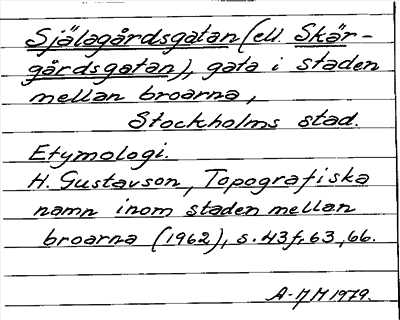 Själagårdsgatan (ell. Skär-
gårdsgatan), gata i staden
mellan broarna,
Stockholms stad.
Etymologi.
H. Gustavson, Topografiska
namn inom staden mellan
broarna (1962), s. 43f, 63, 66.
A-MM 1979.